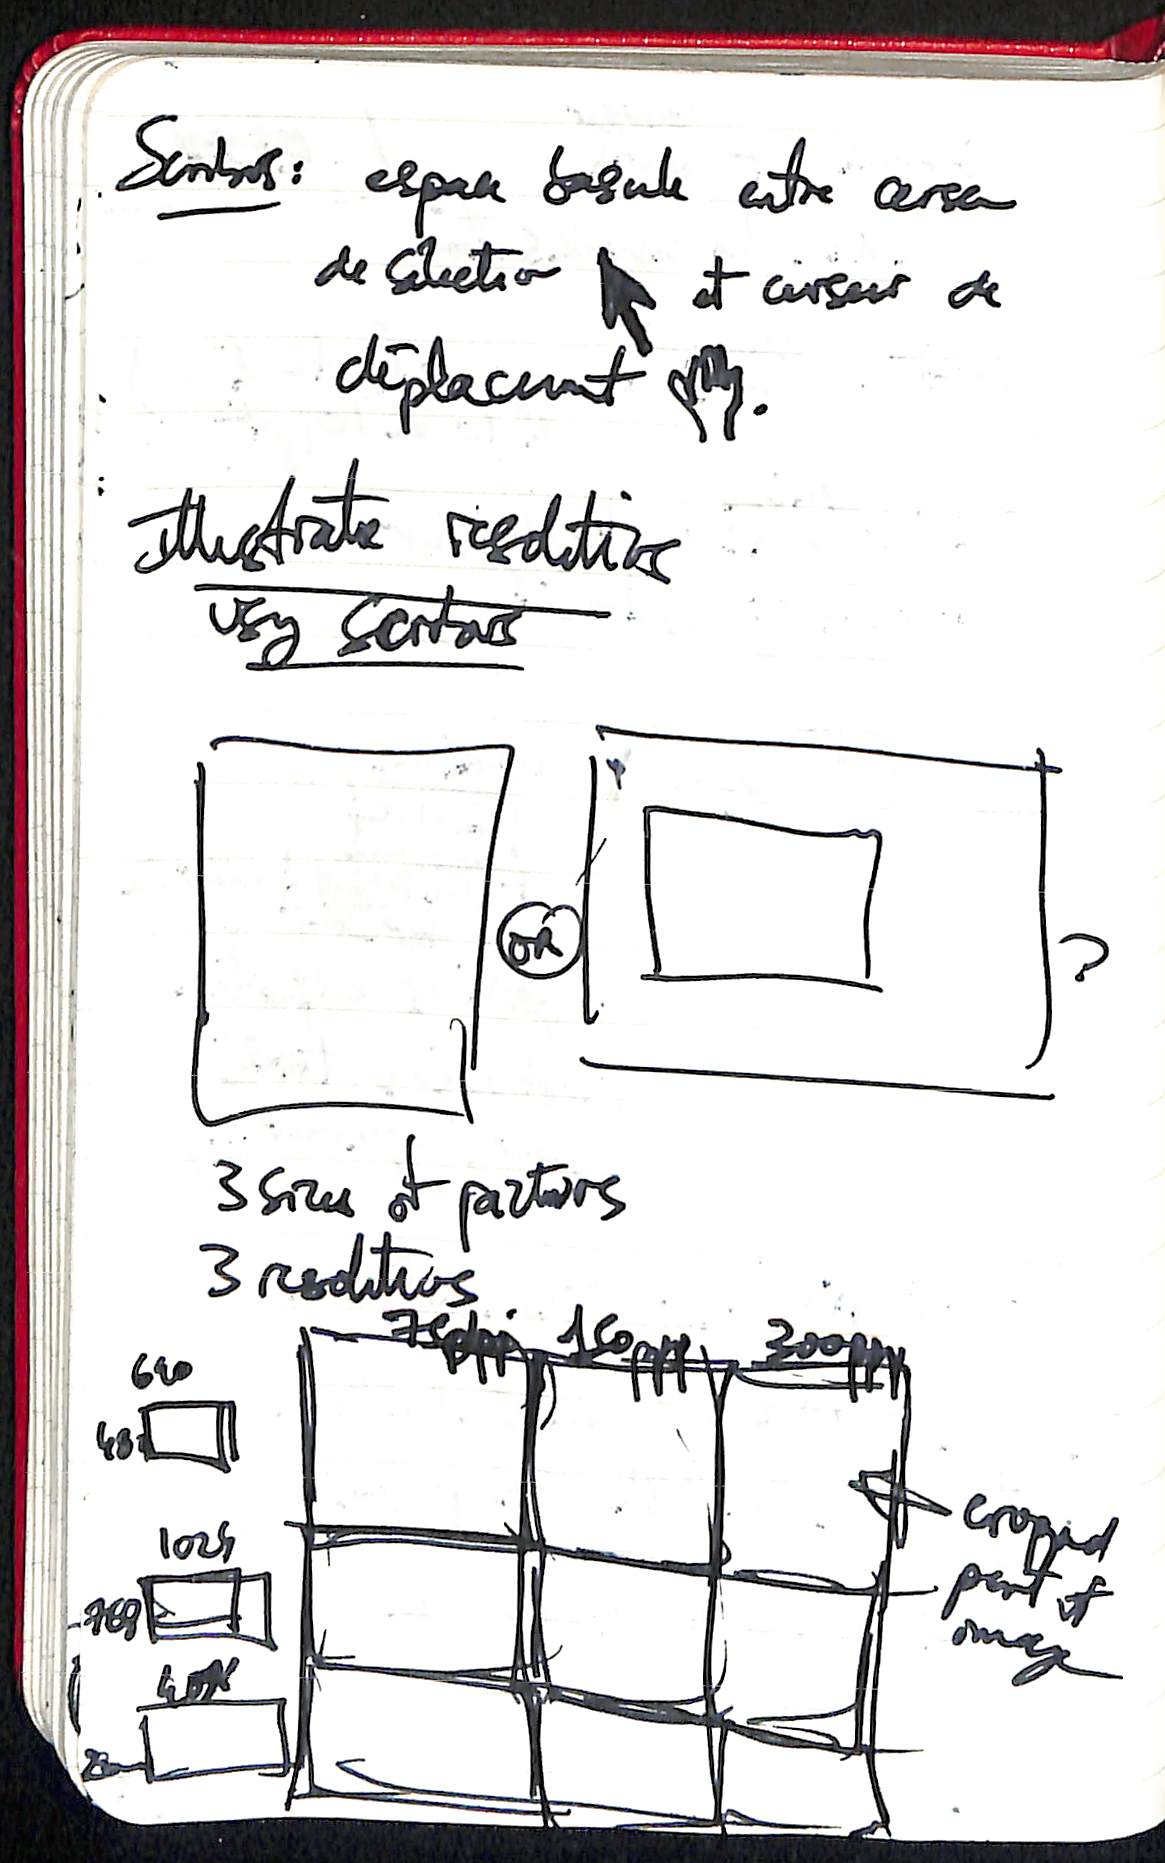 Scribus: espace bascule entre curseur
de sélection et curseur de
déplacement.
Illustrate resolutions
using Scribus
OR
?
3 sizes of pictures
3 resolutions
75ppi 150ppi 300ppi
640
480
1024
768
cropped
part of
image